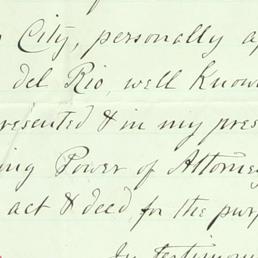 City, personally ap
del Rio, well Know
resented & in my pres
ing Power of Attorney
act & deed, for the purp
In testimon